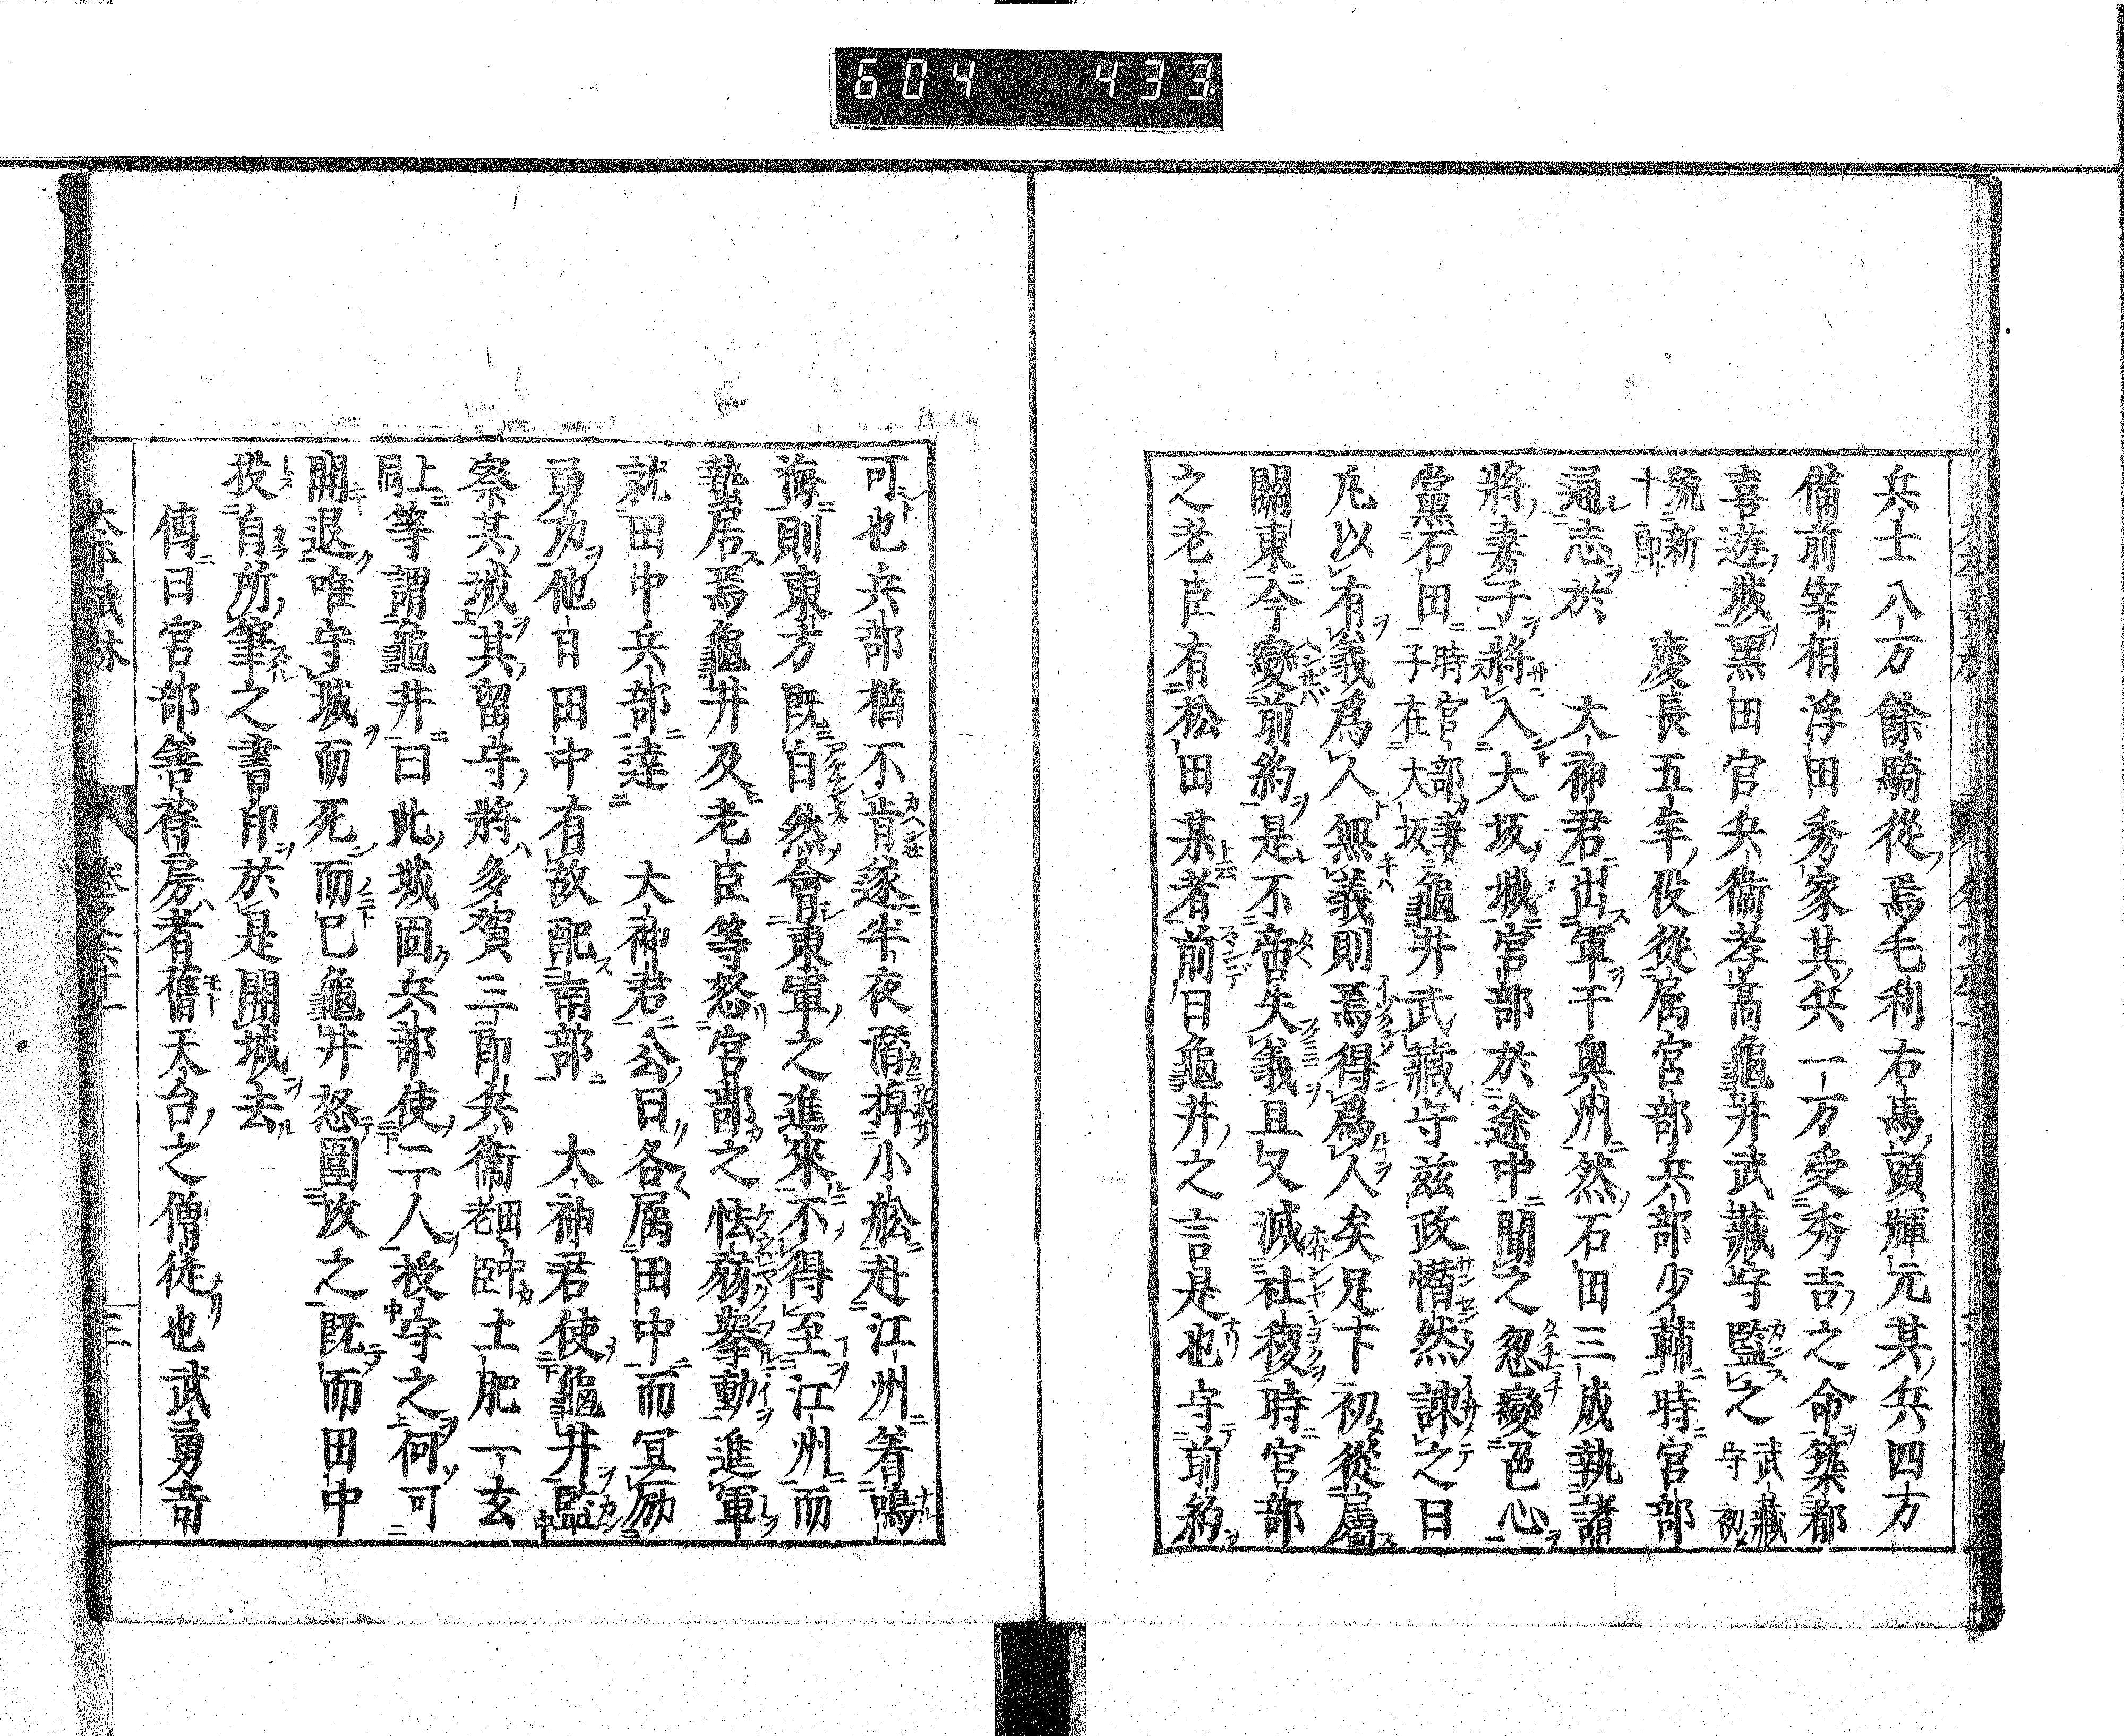 604 433.
兵士八万餘騎從焉毛利右馬頭輝元其兵四万
備前宰相浮田秀家其兵一万受秀吉之命築都
喜遊城黑田官兵衞孝高龜井武藏守監之武藏守初
號新十郎 慶長五年役從属宮部兵部少輔時宮部
通志於 大神君出軍于奥州然石田三成執諸
將妻子將入大坂城宮部於途中聞之忽變色心
黨石田時宮部妻子在大坂龜井武藏守兹政愭然諫之曰
凡以有義爲人無義則焉得爲人矣足下初從屬
關東今變前約是不啻失義且又滅社稷時宮部
之老臣有松田某者前曰龜井之言是也守前約
可也兵部猶不肯遂半夜竊掉小舩赴江州著鳴
海則東方既白然會東軍之進來不得至江州而
蟄居焉龜井及老臣等怒宮部之怯弱擧動進軍
就田中兵部達 大神君公曰各属田中而冝励
勇功他日田中有故配南部 大神君使龜井監
察其城其留守將多賀三郎兵衞田中老臣土肥一玄
同上等謂龜井曰此城固兵部使二人授守之何可
開退唯守城而死而已龜井怒圍攻之既而田中
投自所筆之書印於是開城去
傳曰宮部善祥房者舊天台之僧徒也武勇奇
卷之六十一 三